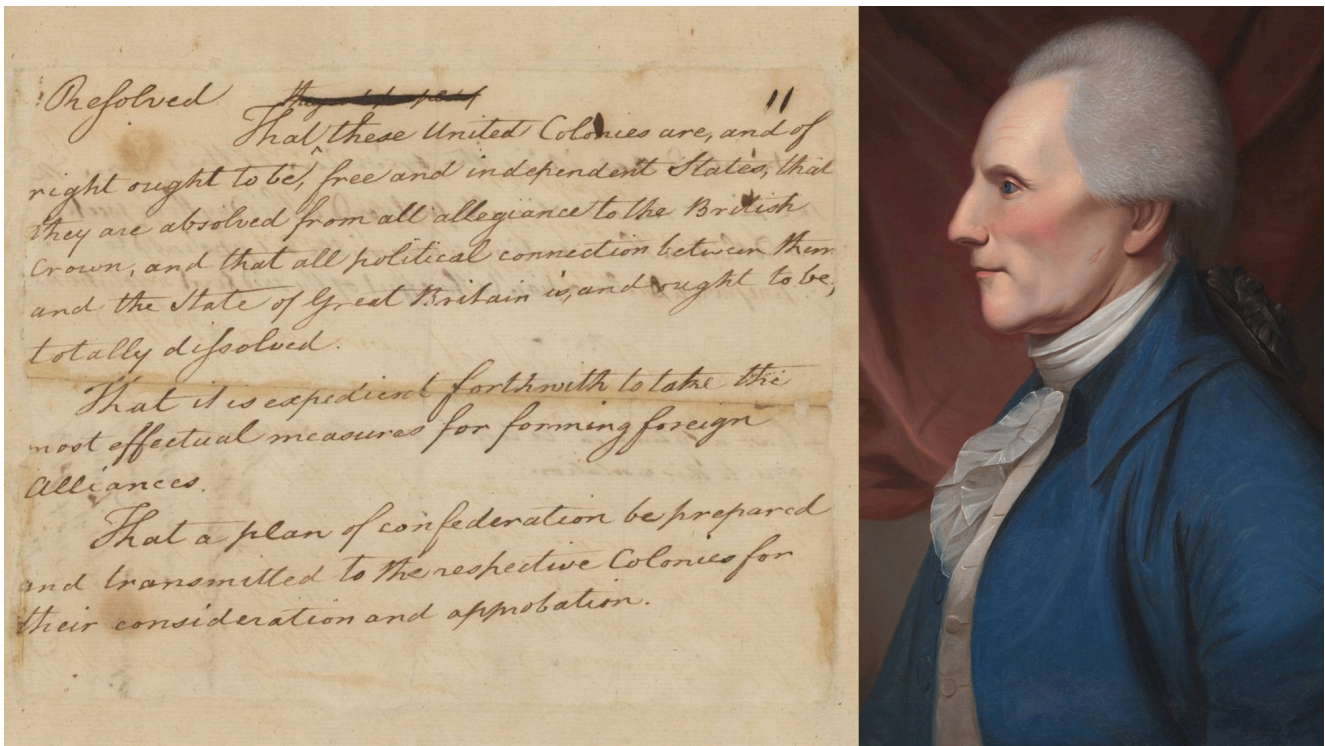 Resolved
11
That these United Colonies are, and of
right ought to be, free and independent States, that
they are absolved from all allegiance to the British
crown, and that all political connection between them
and the State of Great Britain is, and ought to be,
totally dissolved.
That it is expedient forthwith to take the
most effectual measures for forming foreign
Alliances.
That a plan of confederation be prepared
and transmitted to the respective Colonies for
their consideration and approbation.